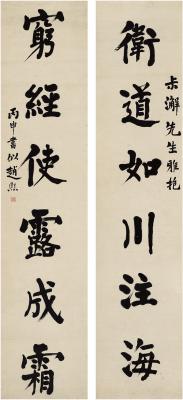 卡澥先生雅抱
衛道如川注海
窮經使露成霜
丙申書似趙熙